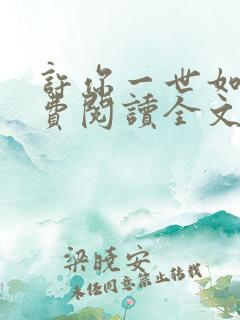 許你一世如
費閱讀全文
梁曉安
未经同意禁止转载